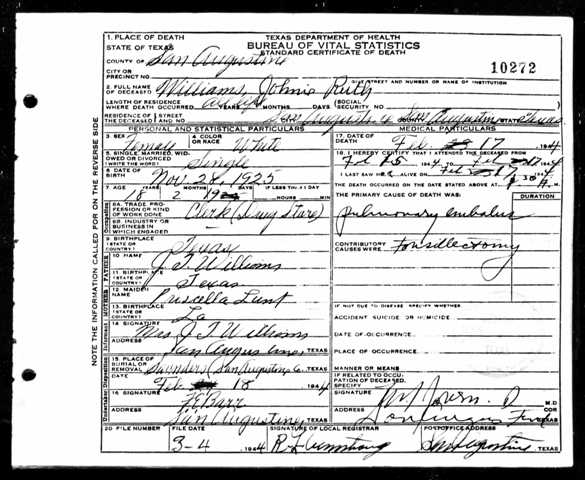 1. PLACE OF DEATH
STATE OF TEXAS
TEXAS DEPARTMENT OF HEALTH
BUREAU OF VITAL STATISTICS
STANDARD CERTIFICATE OF DEATH
COUNTY OF San Augustine
CITY OR PRECINCT NO.
10272
GIVE STREET AND NUMBER OR NAME OF INSTITUTION
2. FULL NAME OF DECEASED Williams, Johnie Ruth
LENGTH OF RESIDENCE WHERE DEATH OCCURRED YEARS MONTHS DAYS (SOCIAL SECURITY NO.
RESIDENCE OF THE DECEASED STREET AND NO. San Augustine CITY San Augustine STATE Texas
PERSONAL AND STATISTICAL PARTICULARS
3 SEX Female
4 COLOR OR RACE White
5 SINGLE, MARRIED, WIDOWED OR DIVORCED (WRITE THE WORD) Single
6 DATE OF BIRTH Nov. 28, 1925
7 AGE YEARS MONTHS DAYS IF LESS THAN 1 DAY
18 2 HOURS MIN
8A. TRADE, PROFESSION OR KIND OF WORK DONE Clerk (Drug Store)
8B. INDUSTRY OR BUSINESS IN WHICH ENGAGED -
9 BIRTHPLACE (STATE OR COUNTRY) Texas
10 NAME J. T. Williams
11 BIRTHPLACE (STATE OR COUNTRY) Texas
12 MAIDEN NAME Priscella Lunt
13 BIRTHPLACE (STATE OR COUNTRY) La
14 SIGNATURE Mrs J T Williams
ADDRESS San Augustine, TEXAS
15 PLACE OF BURIAL OR REMOVAL Saunders (San Augustine Co. TEXAS
DATE Feb 18 1944
16 SIGNATURE Barr
ADDRESS San Augustine, TEXAS
MEDICAL PARTICULARS
17. DATE OF DEATH Feb. 17, 1944
18. I HEREBY CERTIFY THAT I ATTENDED THE DECEASED FROM
Feb 15 1944 TO Feb 17 1944
I LAST SAW HER ALIVE ON Feb 17 1944
THE DEATH OCCURRED ON THE DATE STATED ABOVE AT M.
THE PRIMARY CAUSE OF DEATH WAS:
DURATION
pulmonary embolus
CONTRIBUTORY CAUSES WERE: tonsillectomy
IF NOT DUE TO DISEASE, SPECIFY WHETHER:
ACCIDENT SUICIDE OR HOMICIDE
DATE OF OCCURRENCE
PLACE OF OCCURRENCE
MANNER OR MEANS
IF RELATED TO OCCUPATION OF DECEASED, SPECIFY
M.D.
COR
TEXAS
20 FILE NUMBER
FILE DATE 3-4 1944
SIGNATURE OF LOCAL REGISTRAR R. L. Armstrong
POSTOFFICE ADDRESS San Augustine TEXAS
NOTE THE INFORMATION CALLED FOR ON THE REVERSE SIDE
Occupation
FATHER
MOTHER
Informant
Disposition
Undertaker